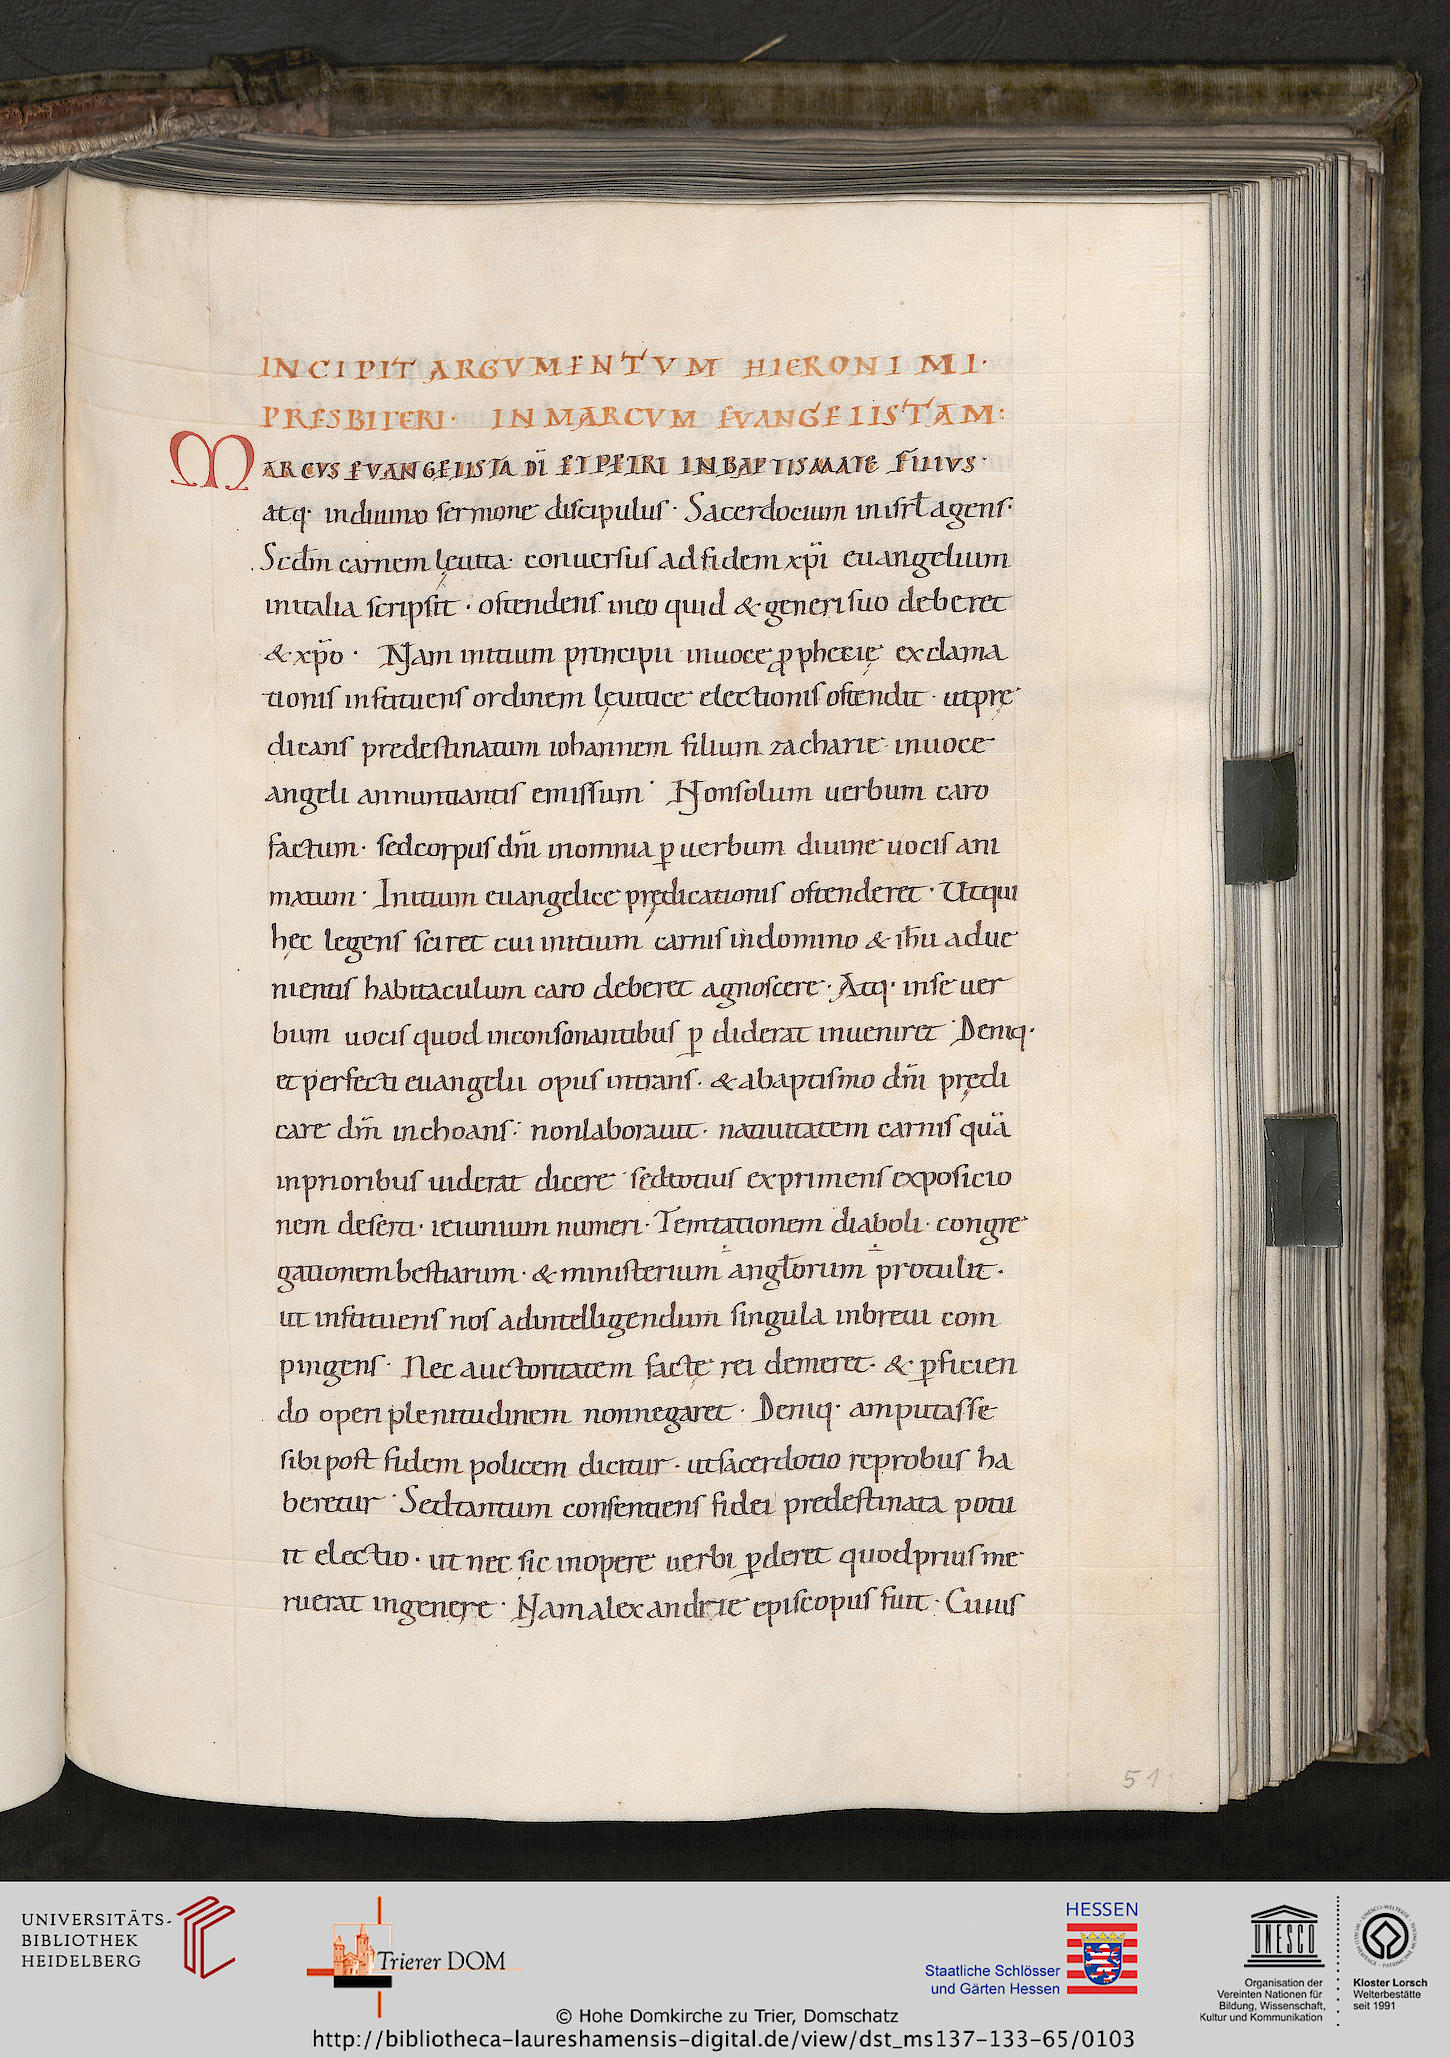 INCIPIT ARGVMENTVM HIERONIMI·
PRESBITERI· IN MARCVM EVANGELISTAM:
MARCVS EVANGELISTA DĪ ET PETRI IN BAPTISMATE FILIVS·
atq· indiuino sermone discipulus· Sacerdocium inisrł agens·
Scdm̄ carnem leuita· conuersus adfidem xp̄i euangelium
initalia scripsit· ostendens ineo quid & generi suo deberet
& xp̄o· Nam initium principii inuoce ꝓphetię exclama
tionis instituens ordinem leuitice electionis ostendit· utprę
dicans predestinatum iohannem filium zacharie inuoce
angeli annuntiantis emissum· Nonsolum uerbum caro
factum· sedcorpus dn̄i inomnia ꝑ uerbum diuine uocis ani
matum· Initium euangelice prędicationis ostenderet· Utqui
hęc legens sciret cui initium carnis indomino & ih̄u adue
nientis habitaculum caro deberet agnoscere· Atq· inse uer
bum uocis quod inconsonantibus ꝑ diderat inueniret· Deniq·
et perfecti euangelii opus intrans· & abaptismo dn̄i prędi
care dm̄ inchoans: nonlaborauit· natiuitatem carnis quā
inprioribus uiderat dicere· sedtotius exprimens exposicio
nem deserti· ieiunium numeri· Temtationem diaboli· congre
gationem bestiarum· & ministerium angłorum protulit·
ut instituens nos adintelligendum singula inbreui com
pingens· Nec auctoritatem factę rei demeret· & ꝑficien
do operi plenitudinem nonnegaret· Deniq· amputasse
sibi post fidem policem dicitur· utsacerdotio reprobus ha
beretur· Sedtantum consentiens fidei predestinata potu
it electio· ut nec sic inopere uerbi ꝑderet quodprius me
ruerat ingenere· Nam alexandrie episcopus fuit· Cuius
51
UNIVERSITÄTS-
BIBLIOTHEK
HEIDELBERG
Trierer DOM
HESSEN
Staatliche Schlösser
und Gärten Hessen
UNESCO
Organisation der
Vereinten Nationen für
Bildung, Wissenschaft,
Kultur und Kommunikation
Kloster Lorsch
Welterbestätte
seit 1991
© Hohe Domkirche zu Trier, Domschatz
http://bibliotheca-laureshamensis-digital.de/view/dst_ms137-133-65/0103